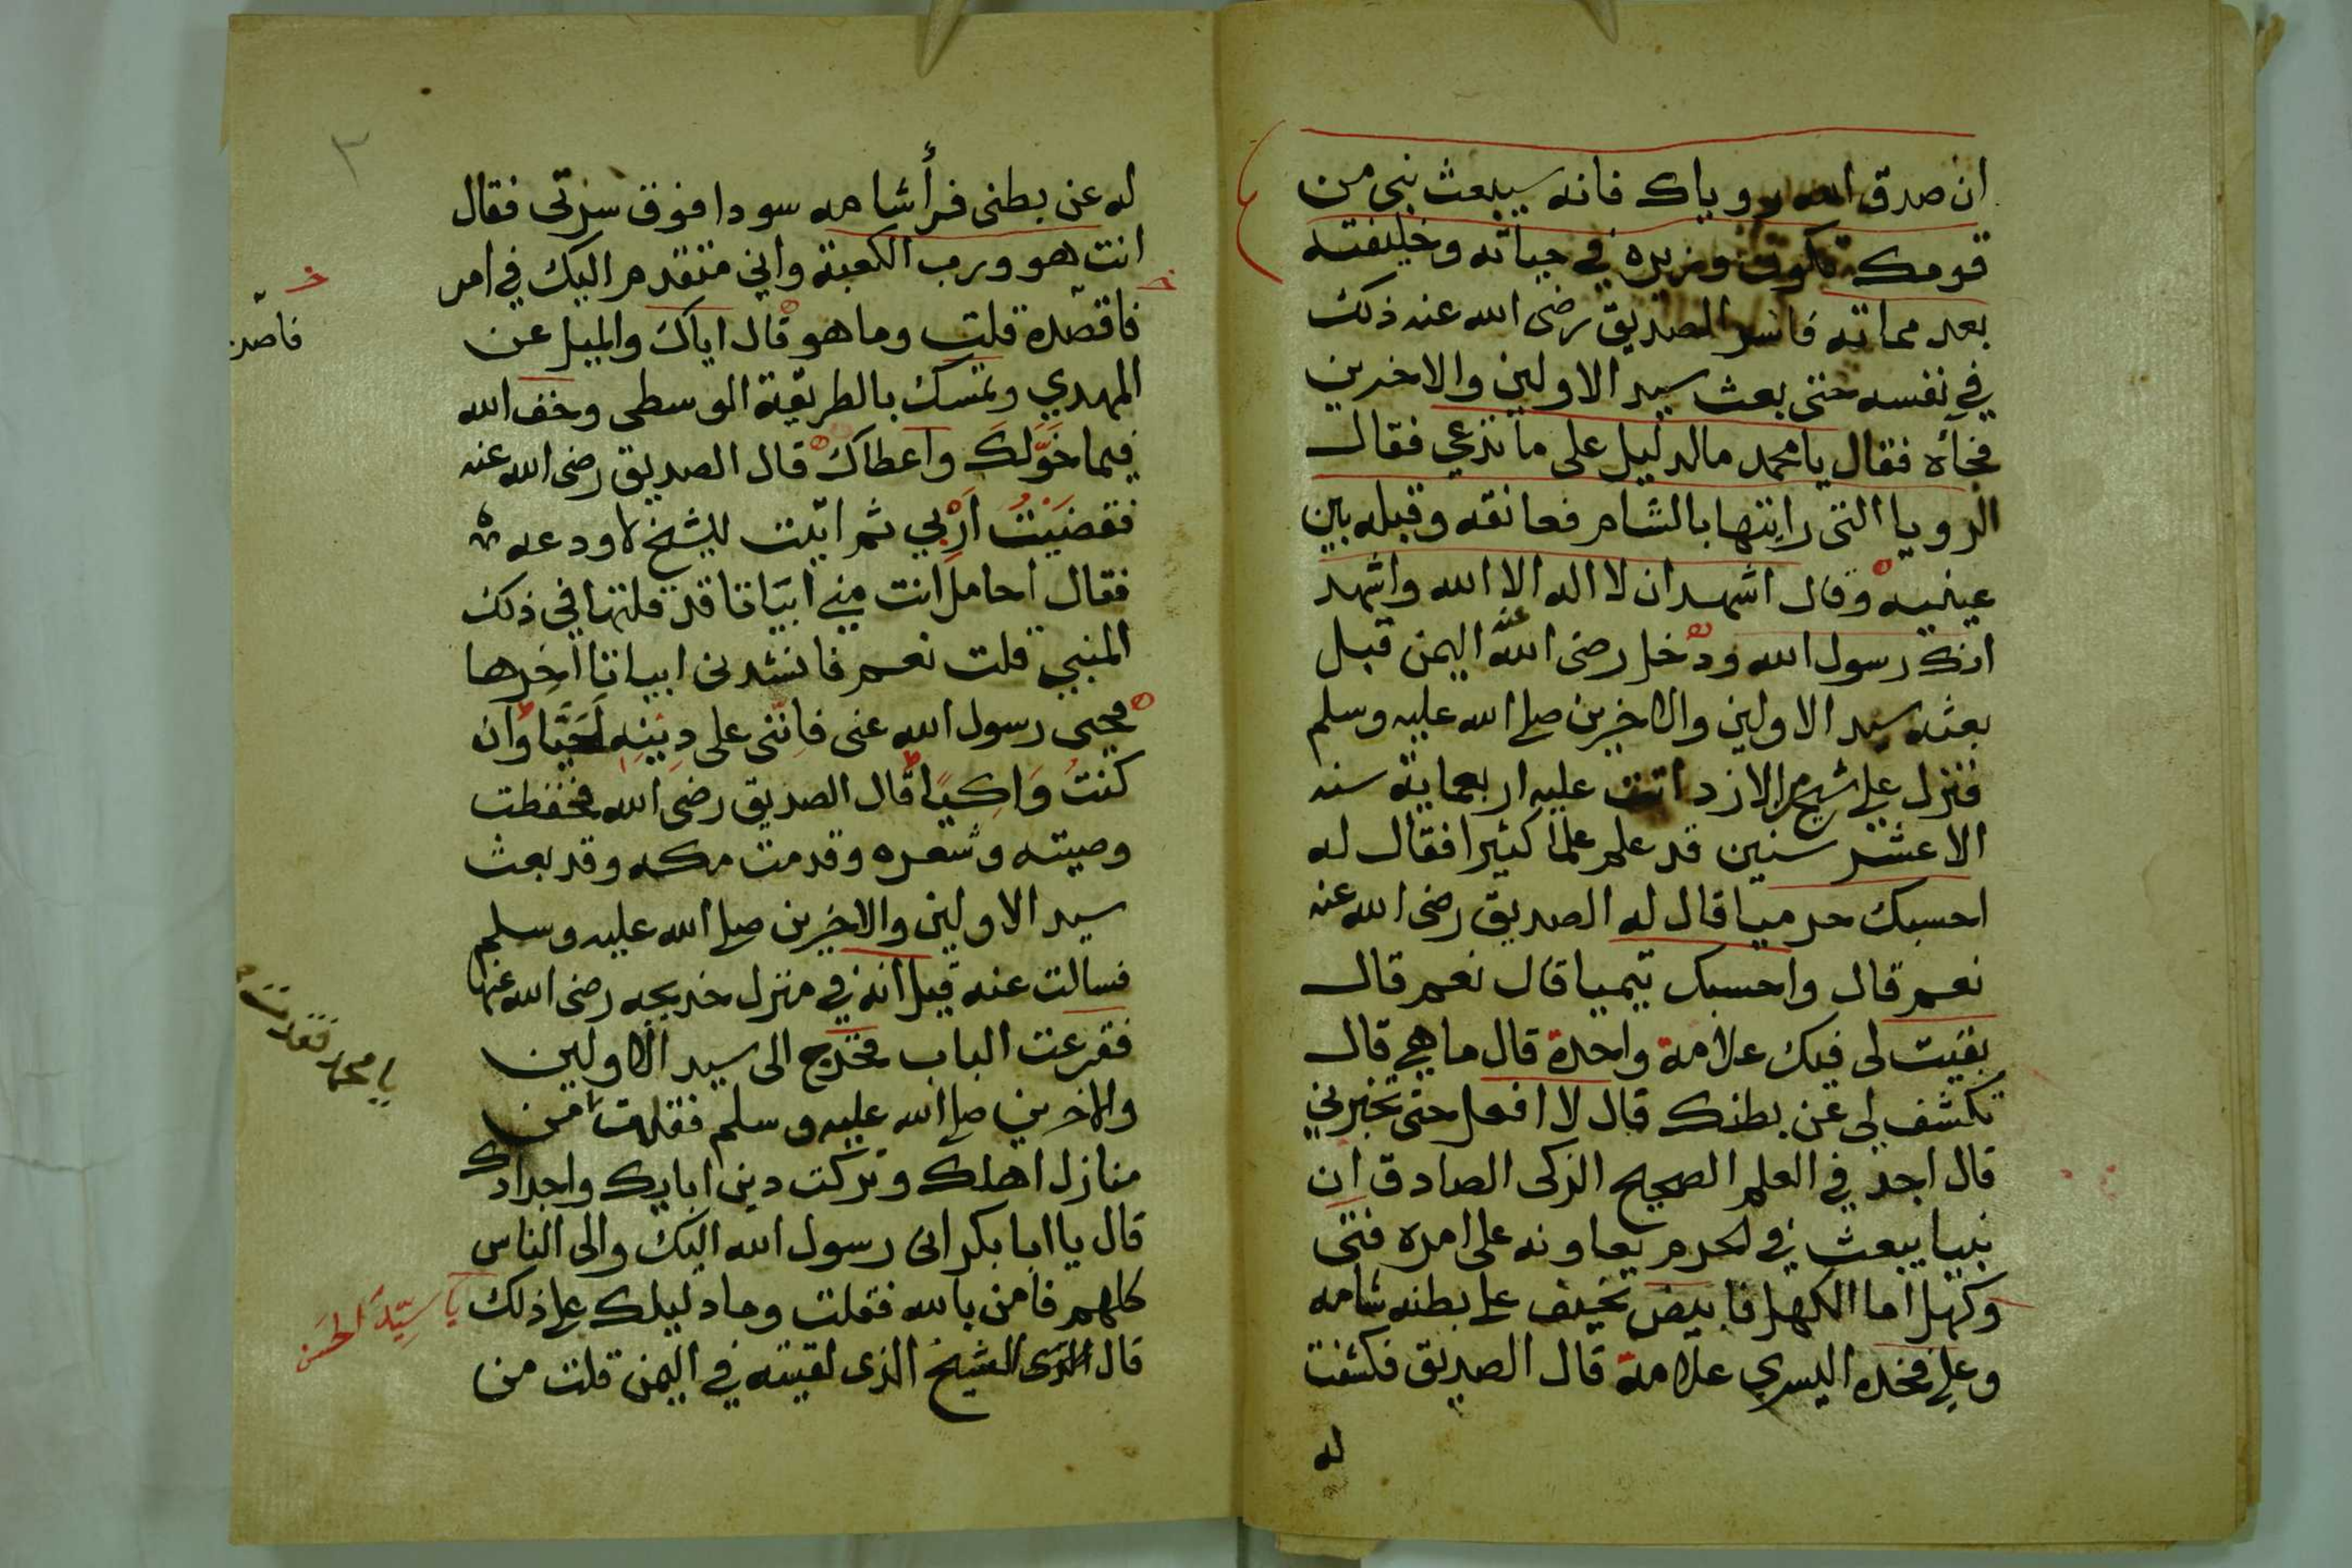 ان صدق الله روياك فانه سيبعث بنبى من
قومك تكون وزيره في حياته وخليفته
بعد مماته فاسر الصديق رضى الله عنه ذلك
في نفسه حتى بعث سيد الاولين والاخرين
فجأه فقال يا محمد ما الدليل على ما تدعي فقال
الرويا التى رايتها بالشام فعانقه وقبله بين
عينيه وقال اشهد ان لا اله الا الله واشهد
انك رسول الله ودخل رضى الله عنه اليمن قبل
بعثه سيد الاولين والاخرين صلى الله عليه وسلم
فنزل على شيخ من الازد اتت عليه اربعماية سنه
الا عشر سنين قد علم علما كثيرا فقال له
احسبك حرميا قال له الصديق رضى الله عنه
نعم قال واحسبك تيميا قال نعم قال
بقيت لى فيك علامة واحدة قال ما هي قال
تكشف لي عن بطنك قال لا افعل حتى تخبرني
قال اجد في العلم الصحيح الزكى الصادق ان
نبيا يبعث في الحرم يعاونه على امره فتى
وكهل اما الكهل فابيض نحيف على بطنه شامه
وعلى فخده اليسري علامة قال الصديق فكشفت
له
٣
له عن بطنى فرأ شامه سودا فوق سرتى فقال
انت هو ورب الكعبة واني متقدم اليك في امر
فاقصده قلت وما هو قال اياك والميل عن
فاصد
المهدي وتمسك بالطريقة الوسطى وخف الله
فيما خَوَّلك واعطاك قال الصديق رضى الله عنه
فقضيْتُ اَرْبي ثم اتيت للشيخ لاودعه
فقال احامل انت مني ابياتا قد قلتها في ذلك
النبي قلت نعم فانشدنى ابياتا اخرها
فحيى رسول الله عنى فانّنى على دينه احيا وان
كنتُ وَاكِيَا قال الصديق رضى الله فحفظت
وصيته وشعره وقدمت مكه وقد بعث
سيد الاولين والاخرين صلى الله عليه وسلم
فسالت عنه قيل انه في منزل خديجه رضى الله عنها
فقرعت الباب فخرج الى سيد الاولين
والاخرين صلى الله عليه وسلم فقلت من
يا محمد فقدت
منازل اهلك وتركت دين ابايك واجدادك
قال يا ابا بكر انى رسول الله اليك والى الناس
كلهم فامن بالله فقلت وما دليلك على ذلك
يا سيّد الحسن
قال الشيخ الذى لقيته في اليمن قلت من